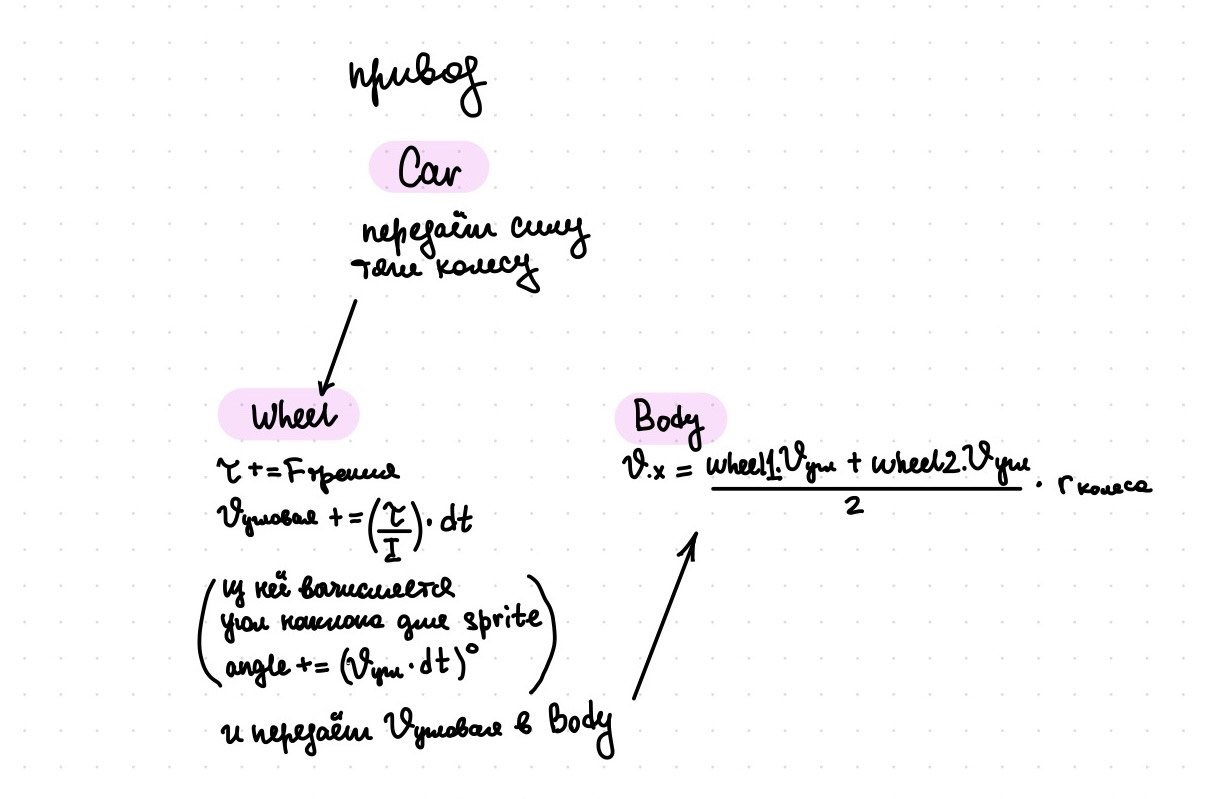 привод
Car
передаёт силу
тяги колесу
Wheel
τ += Fтрения
Vугловая += (τ/I) · dt
(из неё вычисляется
угол наклона для sprite
angle += (Vугл · dt)°)
и передаёт Vугловая в Body
Body
V.x = (wheel1.Vугл + wheel2.Vугл)/2 · r колеса